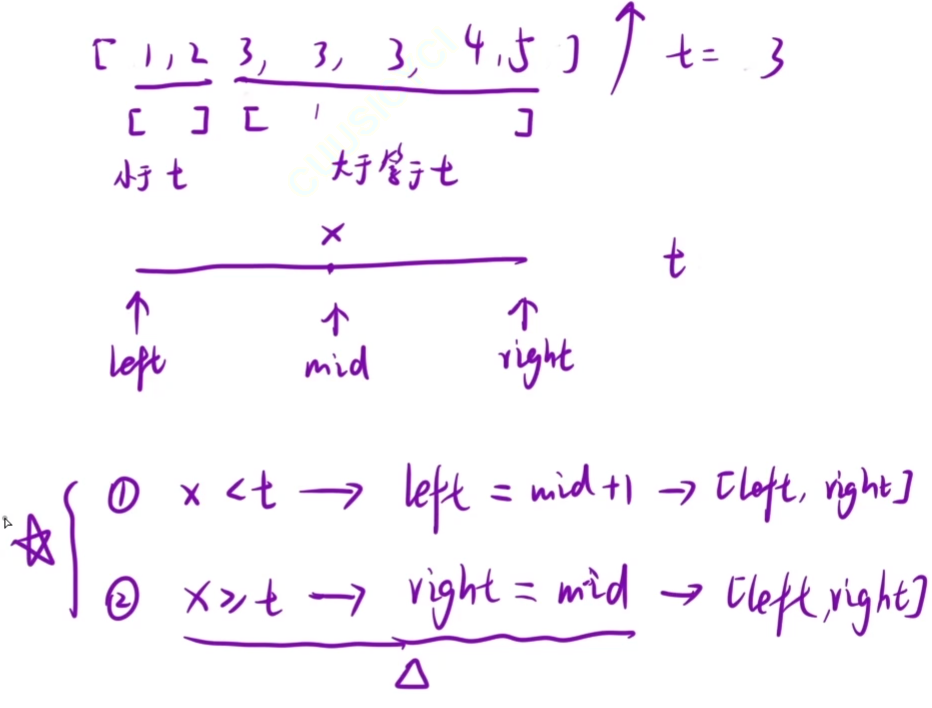 [ 1, 2 3, 3, 3, 4, 5 ] ↑ t = 3
[ ] [ ]
小于 t 大于等于 t
x
t
↑ ↑ ↑
left mid right
☆ { ① x < t → left = mid+1 → [left, right]
② x ≥ t → right = mid → [left, right]
△